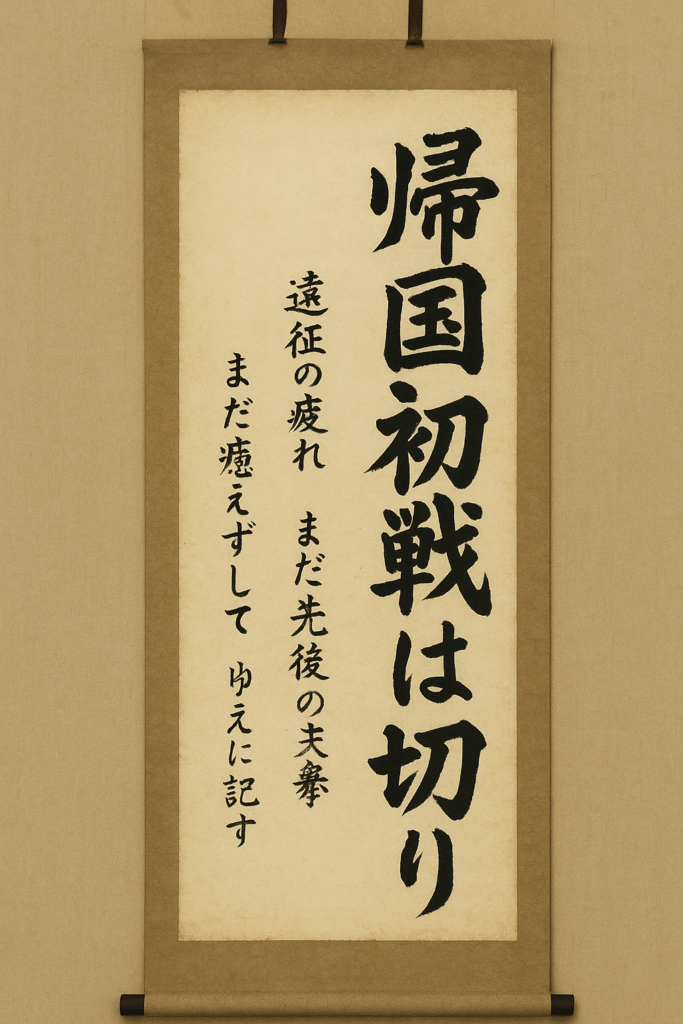 帰国初戦は切り
遠征の疲れ まだ先後の夫
まだ癒えずして ゆえに記す